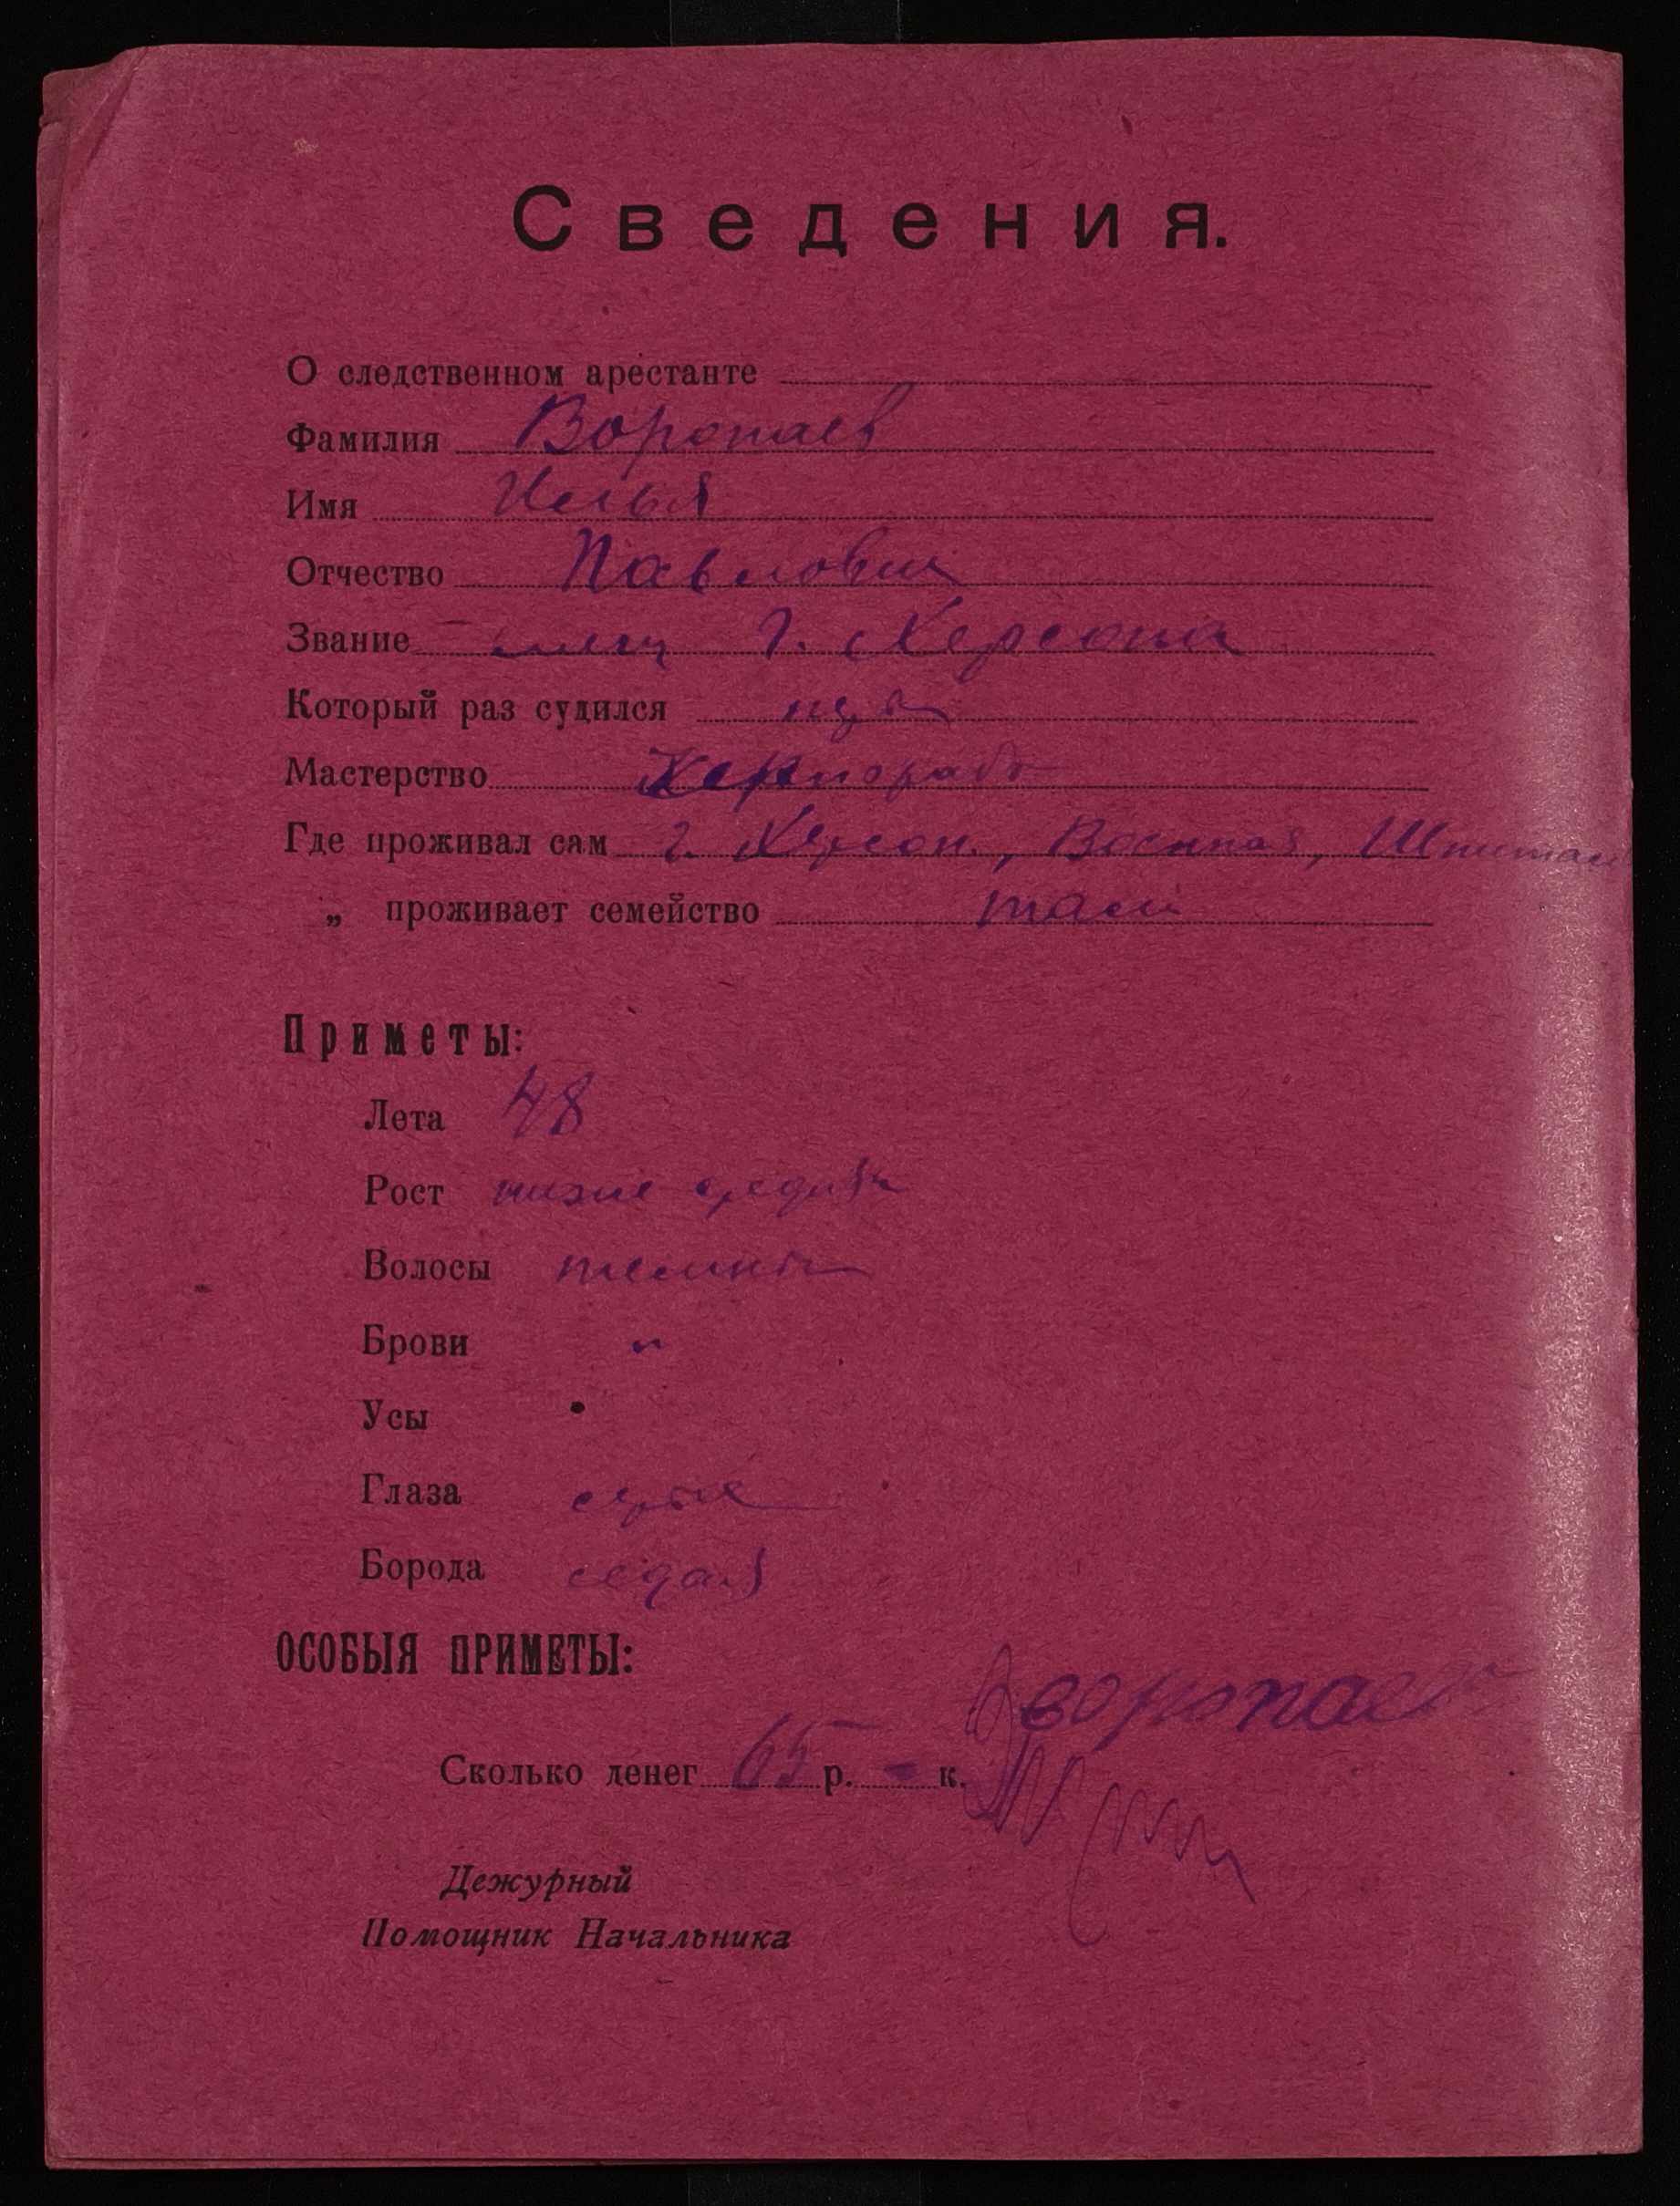 Сведения.
О следственном арестанте
Фамилия Воропаев
Имя Илья
Отчество Павлович
Звание мещ г. Херсона
Который раз судился перв
Мастерство Чернораб
Где проживал сам г. Херсон, Военная, Шпитал
„ проживает семейство там
Приметы:
Лета 48
Рост ниже средня
Волосы темные
Брови "
Усы
Глаза серые
Борода седая
ОСОБЫЯ ПРИМЕТЫ:
Воропаев
Сколько денег 65 р. - к.
Дежурный
Помощник Начальника